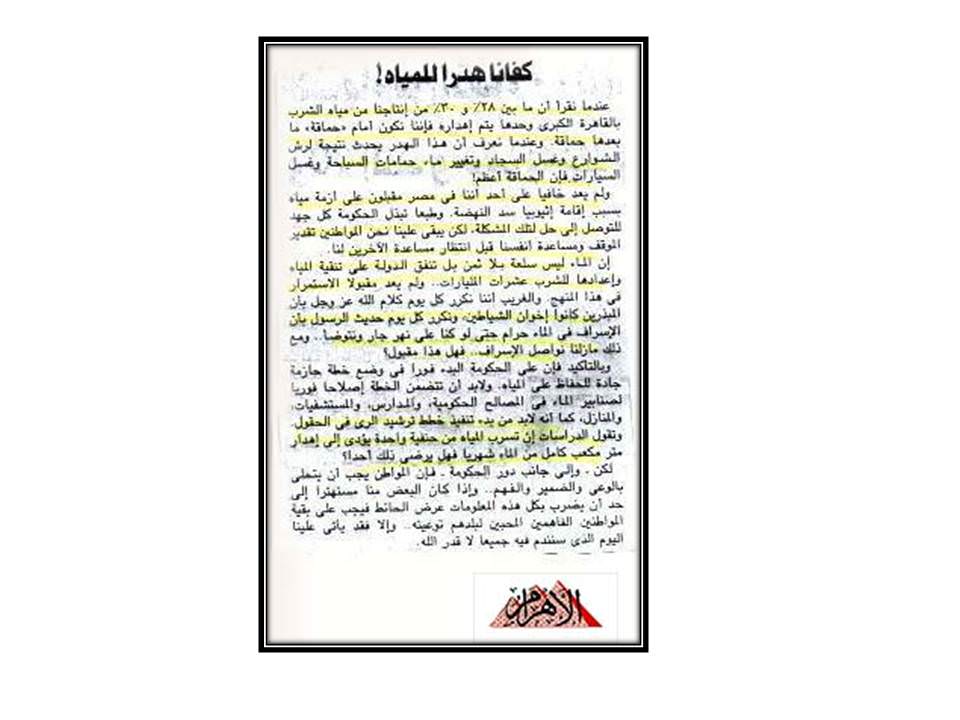 كفانا هدرا للمياه!
عندما نقرأ أن ما بين ٢٨٪ و ٣٠٪ من إنتاجنا من مياه الشرب
بالقاهرة الكبرى وحدها يتم إهداره فإننا نكون أمام «حماقة» ما
بعدها حماقة. وعندما نعرف أن هذا الهدر يحدث نتيجة لرش
الشوارع وغسل السجاد وتغيير ماء حمامات السباحة وغسل
السيارات فإن الحماقة أعظم!
ولم يعد خافيا على أحد أننا فى مصر مقبلون على أزمة مياه
بسبب إقامة إثيوبيا سد النهضة. وطبعا تبذل الحكومة كل جهد
للتوصل إلى حل لتلك المشكلة، لكن يبقى علينا نحن المواطنين تقدير
الموقف ومساعدة أنفسنا قبل انتظار مساعدة الآخرين لنا.
إن الماء ليس سلعة بلا ثمن بل تنفق الدولة على تنقية المياه
وإعدادها للشرب عشرات المليارات.. ولم يعد مقبولا الاستمرار
فى هذا المنهج. والغريب أننا نكرر كل يوم كلام الله عز وجل بأن
المبذرين كانوا إخوان الشياطين، ونكرر كل يوم حديث الرسول بأن
الإسراف فى الماء حرام حتى لو كنا على نهر جار ونتوضأ.. ومع
ذلك مازلنا نواصل الإسراف.. فهل هذا مقبول؟
وبالتأكيد فإن على الحكومة البدء فورا فى وضع خطة حازمة
جادة للحفاظ على المياه. ولابد أن تتضمن الخطة إصلاحا فوريا
لصنابير الماء فى المصالح الحكومية، والمدارس، والمستشفيات،
والمنازل، كما أنه لابد من بدء تنفيذ خطط ترشيد الرى فى الحقول.
وتقول الدراسات إن تسرب المياه من حنفية واحدة يؤدى إلى إهدار
متر مكعب كامل من الماء شهريا فهل يرضى ذلك أحدا؟
لكن ـ وإلى جانب دور الحكومة ـ فإن المواطن يجب أن يتحلى
بالوعى والضمير والفهم.. وإذا كان البعض منا مستهترا إلى
حد أن يضرب بكل هذه المعلومات عرض الحائط فيجب على بقية
المواطنين الفاهمين المحبين لبلدهم توعيته.. وإلا فقد يأتى علينا
اليوم الذى سنندم فيه جميعا لا قدر الله.
الأهرام